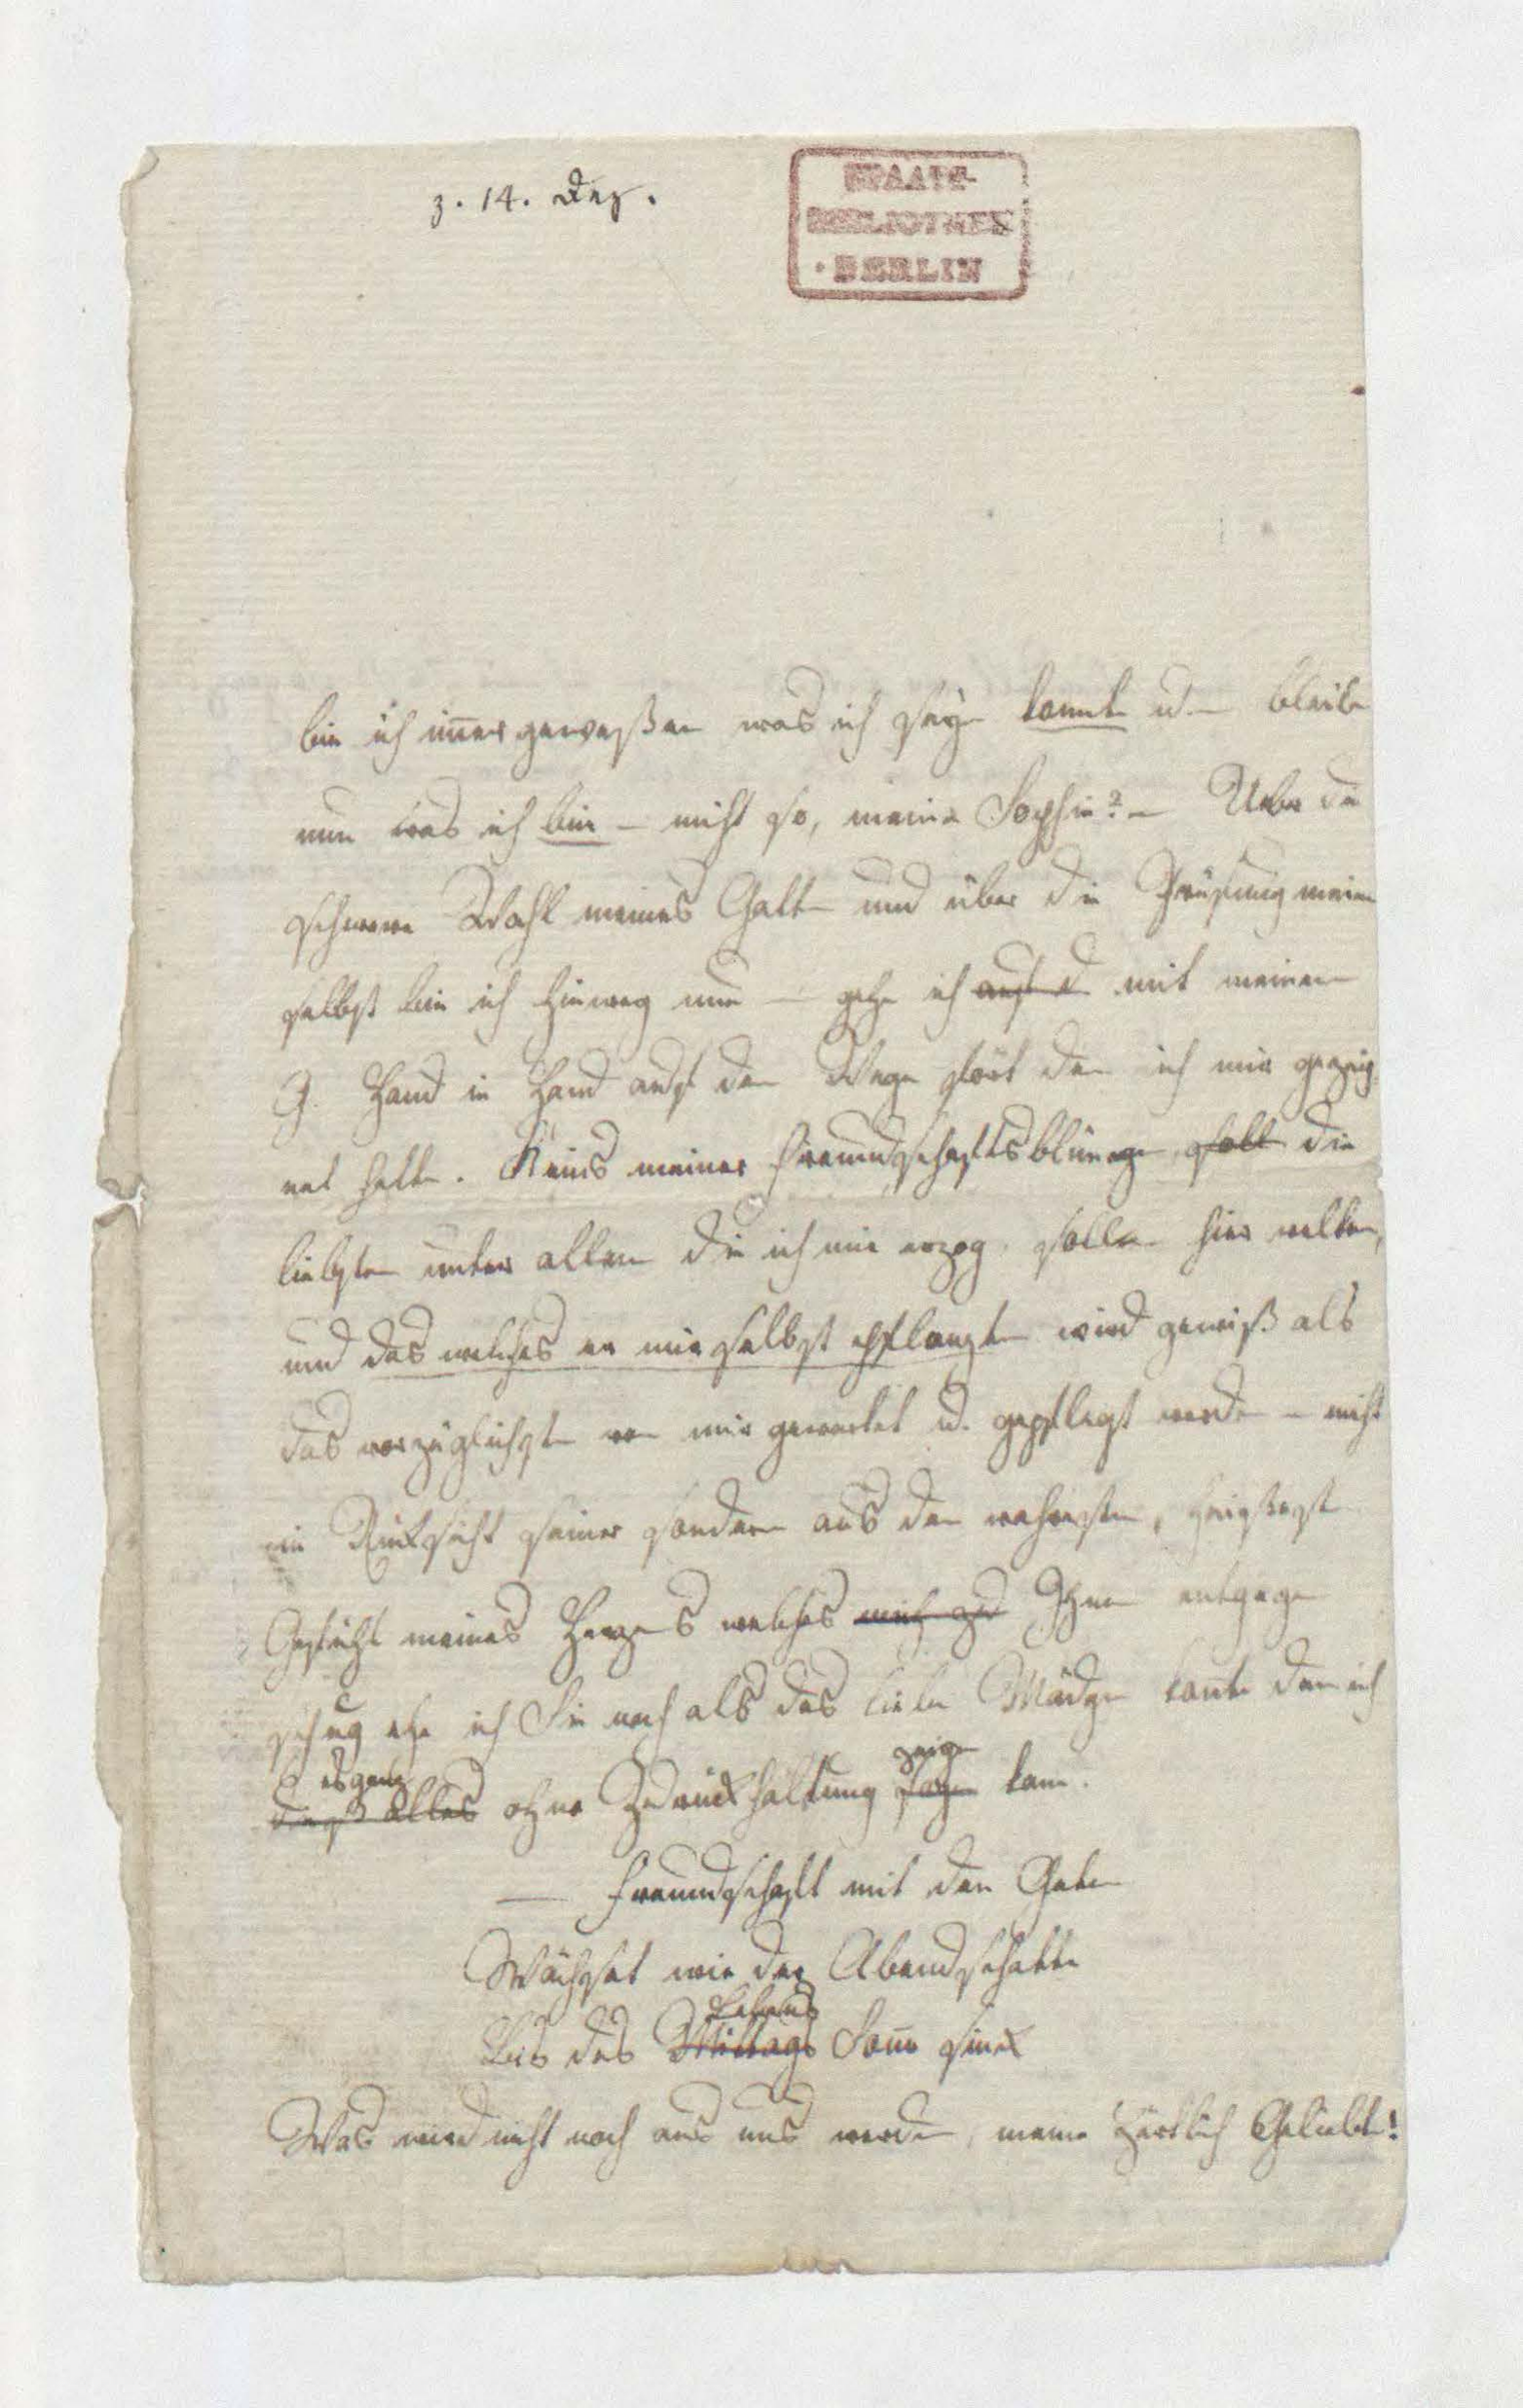 z. 14. Dez.
STAATS-
BIBLIOTHEK
BERLIN
bin ich im̅er geweßen was ich seyn konnte u. bleibe
nun was ich bin – nicht so, meine Sophie? – Ueber die
schwere Wahl meines Gatten und über die Prüfung meiner
selbst bin ich hinweg nun – gehe ich auf d mit meinem
G. Hand in Hand auf dem Wege fort den ich mir gezeig
net hatte. Keins meiner Freundschaftsblümgen soll die
liebsten unter allen die ich mir erzog, sollen hier welken,
und das welches er mir selbst pflanzte wird gewiß als
das vorzüglichste von mir gewartet u. gepflegt werden – nicht
in Rüksicht seiner sondern aus dem wahresten, heißesten
Gefühl meines Herzens welches mich zu Ihnen entgegen
schlug ehe ich Sie noch als das liebe Mädgen kan̅te dem ich
es ganz zeigen
dieß alles ohne Zurückhaltung sagen kann.
— Freundschaft mit den Guten
Wächset wie der Abendschatten
Lebens
Bis des Mittags Son̅e sinkt
Was wird nicht noch aus uns werden, meine zärtlich Geliebte!